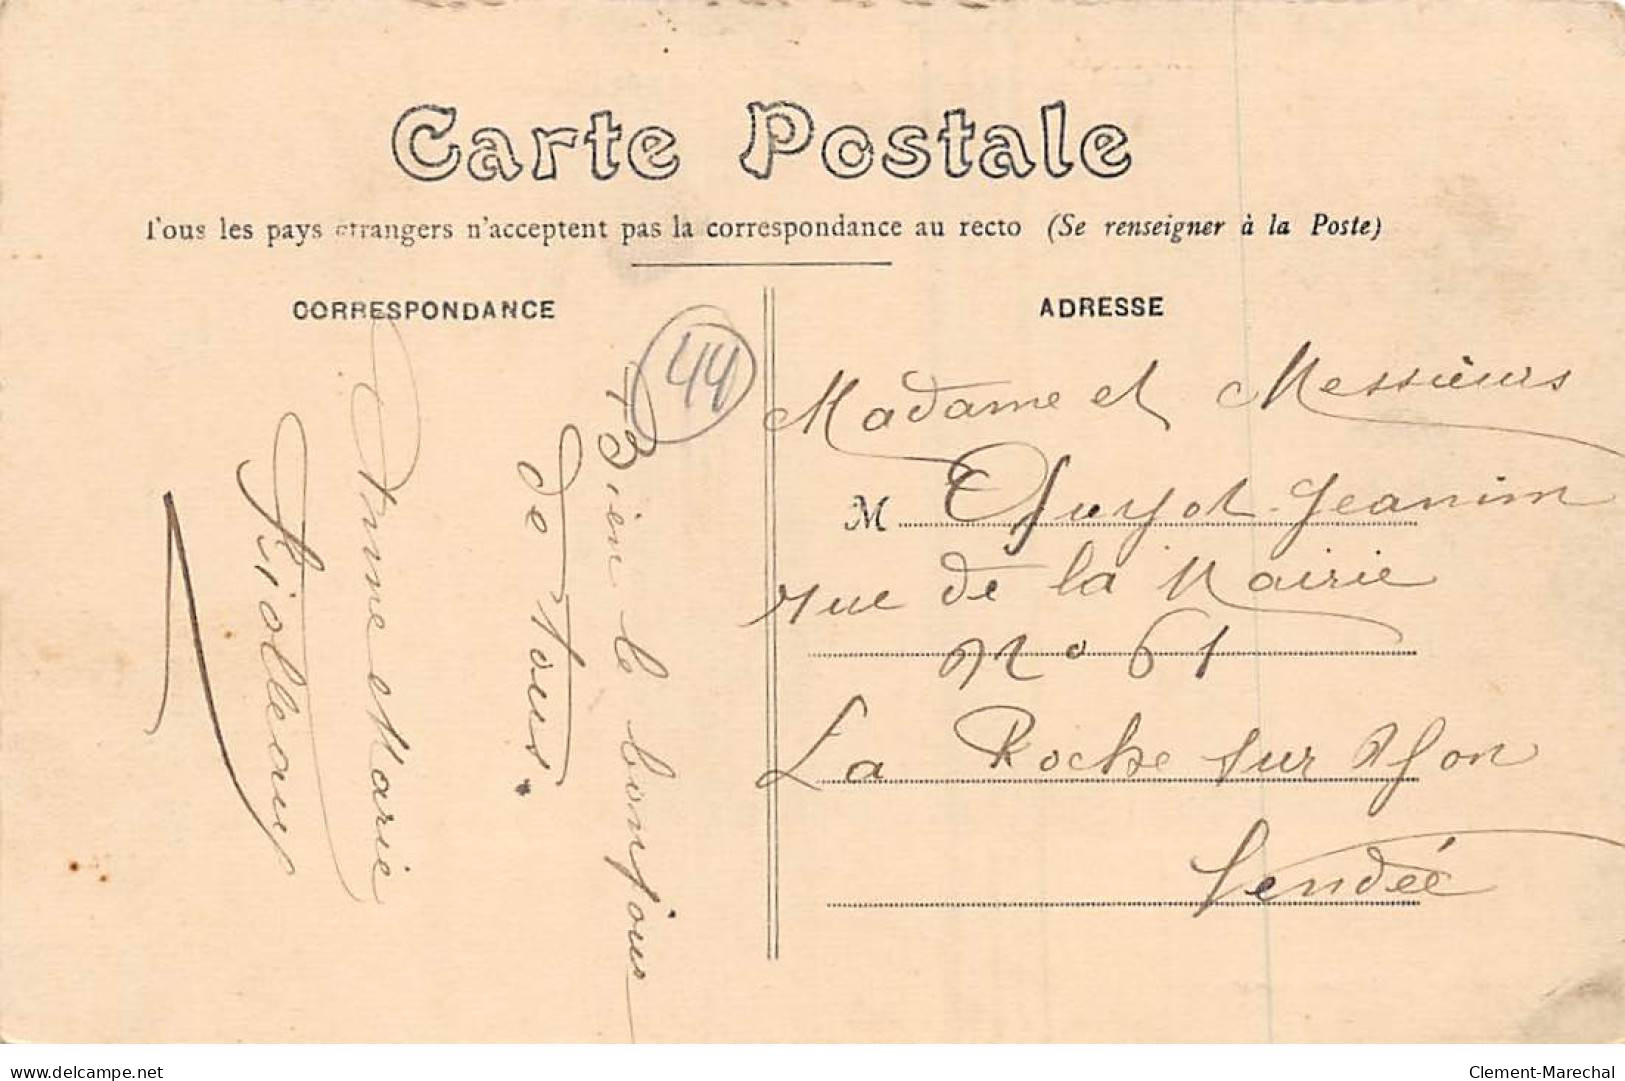 Carte Postale
Tous les pays étrangers n'acceptent pas la correspondance au recto (Se renseigner à la Poste)
CORRESPONDANCE
44
Bien le bonjour
de tous.
Anne Marie
ADRESSE
Madame et Messieurs
M Guyot-Jeannin
rue de la Mairie
No 61
La Roche sur Yon
Vendée
www.delcampe.net
Clement-Marechal